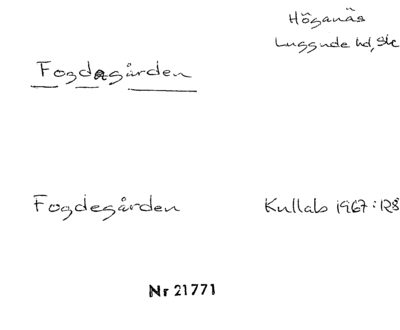 Höganäs
Luggude hd, Sk
Fogdagården
Fogdegården Kullab 1967:128
Nr 21771